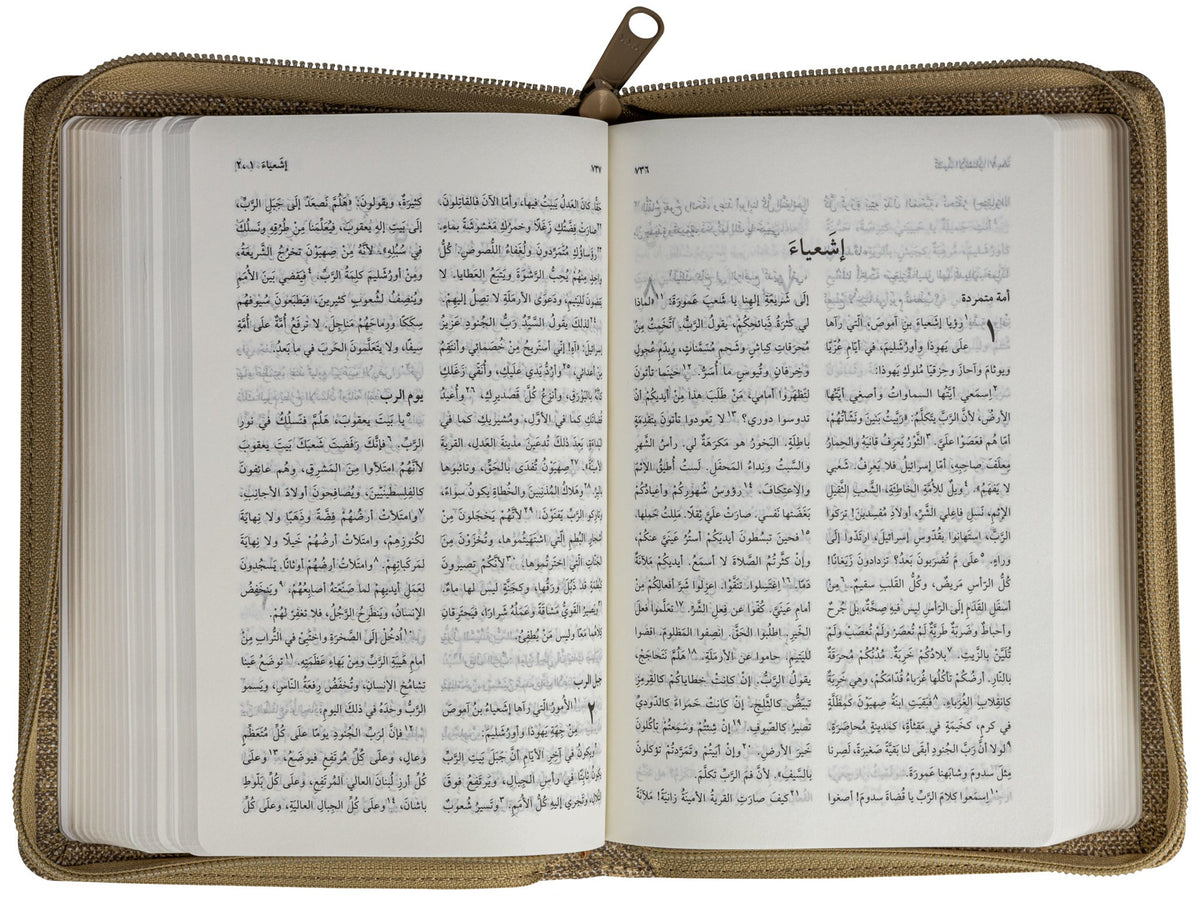 ٧٣٦
إشَعياءَ
أمة متمردة
١
رُؤيا إشَعياءَ بنِ آموصَ، الّتي رآها
علَى يَهوذا وأورُشَليمَ، في أيّامِ عُزّيّا
ويوثامَ وآحازَ وحِزقيّا مُلوكِ يَهوذا:
٢اِسمَعي أيَّتُها السماواتُ وأصغي أيَّتُها
الأرضُ، لأنَّ الرَّبَّ يتَكلَّمُ: «رَبَّيتُ بَنينَ ونَشّأتُهُمْ،
أمّا هُم فعَصَوْا علَيَّ. ٣الثَّوْرُ يَعرِفُ قانيَهُ والحِمارُ
مِعلَفَ صاحِبِهِ، أمّا إسرائيلُ فلا يَعرِفُ. شَعبي
لا يَفهَمُ». ٤ويلٌ للأُمَّةِ الخاطِئَةِ، الشَّعبِ الثَّقيلِ
الإثمِ، نَسلِ فاعِلي الشَّرِّ، أولادِ مُفسِدينَ! ترَكوا
الرَّبَّ، استَهانوا بقُدّوسِ إسرائيلَ، ارتَدّوا إلَى
وراءٍ. ٥علَى مَ تُضرَبونَ بَعدُ؟ تزدادونَ زَيَغانًا!
كُلُّ الرّأسِ مَريضٌ، وكُلُّ القَلبِ سقيمٌ. ٦مِنْ
أسفَلِ القَدَمِ إلَى الرّأسِ ليس فيهِ صِحَّةٌ، بل جُرحٌ
وأحباطٌ وضَربَةٌ طَريَّةٌ لَمْ تُعصَرْ ولَمْ تُعصَبْ ولَمْ
تُلَيَّنْ بالزَّيتِ. ٧بلادُكُمْ خَرِبَةٌ. مُدُنُكُمْ مُحرَقَةٌ
بالنّارِ. أرضُكُمْ تأكُلُها غُرَباءُ قُدّامَكُمْ، وهي خَرِبَةٌ
كانقِلابِ الغُرَباءِ. ٨فبَقيَتِ ابنَةُ صِهيَوْنَ كمِظَلَّةٍ
في كرمٍ، كخَيمَةٍ في مَقثأةٍ، كمَدينَةٍ مُحاصَرَةٍ.
٩لولا أنَّ رَبَّ الجُنودِ أبقَى لنا بَقيَّةً صَغيرَةً، لَصِرنا
مِثلَ سدومَ وشابَهنا عَمورَةَ.
١٠اِسمَعوا كلامَ الرَّبِّ يا قُضاةَ سدومَ! أصغوا
إلَى شَريعَةِ إلهِنا يا شَعبَ عَمورَةَ: ١١«لماذا
لي كثرَةُ ذَبائحِكُمْ، يقولُ الرَّبُّ. اتَّخَمتُ مِنْ
مُحرَقاتِ كِباشٍ وشَحمِ مُسَمَّناتٍ، وبدَمِ عُجولٍ
وخِرفانٍ وتُيوسٍ ما أُسَرُّ. ١٢حينَما تأتونَ
لتَظهَروا أمامي، مَنْ طَلَبَ هذا مِنْ أيديكُمْ أنْ
تدوسوا دوري؟ ١٣لا تعودوا تأتونَ بتَقدِمَةٍ
باطِلَةٍ. البَخورُ هو مَكرَهَةٌ لي. رأسُ الشَّهرِ
والسَّبتُ ونِداءُ المَحفَلِ. لَستُ أُطيقُ الإثمَ
والاعتِكافَ. ١٤رُؤوسُ شُهورِكُمْ وأعيادُكُمْ
بَغَضَتها نَفسي. صارَتْ علَيَّ ثِقلًا. مَلِلتُ حَملَها.
١٥فحينَ تبسُطونَ أيديَكُمْ أستُرُ عَينَيَّ عنكُمْ،
وإنْ كثَّرتُمُ الصَّلاةَ لا أسمَعُ. أيديكُمْ مَلآنَةٌ
دَمًا. ١٦اِغتَسِلوا. تنَقَّوْا. اعزِلوا شَرَّ أفعالِكُمْ مِنْ
أمامِ عَينَيَّ. كُفّوا عن فِعلِ الشَّرِّ. ١٧تعَلَّموا فعلَ
الخَيرِ. اطلُبوا الحَقَّ. انصِفوا المَظلومَ. اقضوا
لليَتيمِ. حاموا عن الأرمَلَةِ. ١٨هَلُمَّ نَتَحاجَجْ،
يقولُ الرَّبُّ. إنْ كانتْ خطاياكُمْ كالقِرمِزِ
تبيَضُّ كالثَّلجِ. إنْ كانتْ حَمراءَ كالدّوديِّ
تصيرُ كالصّوفِ. ١٩إنْ شِئتُمْ وسَمِعتُمْ تأكُلونَ
خَيرَ الأرضِ. ٢٠وإنْ أبَيتُمْ وتَمَرَّدتُمْ تؤكَلونَ
بالسَّيفِ». لأنَّ فمَ الرَّبِّ تكلَّمَ.
٢١كيفَ صارَتِ القريةُ الأمينَةُ زانيَةً! مَلآنَةً
٧٣٧
إشَعياءَ ١، ٢
حَقًّا. كانَ العَدلُ يَبيتُ فيها، وأمّا الآنَ فالقاتِلونَ.
٢٢صارَتْ فِضَّتُكِ زَغَلًا وخَمرُكِ مَغشوشَةً بماءٍ.
٢٣رؤَساؤُكِ مُتَمَرِّدونَ ولُغَفاءُ اللُّصوصِ. كُلُّ
واحِدٍ مِنهُمْ يُحِبُّ الرَّشوَةَ ويَتبَعُ العَطايا. لا
يَقضونَ لليَتيمِ، ودَعوَى الأرمَلَةِ لا تصِلُ إليهِمْ.
٢٤لذلكَ يقولُ السَّيِّدُ رَبُّ الجُنودِ عَزيزُ
إسرائيلَ: «آهِ! إنّي أستَريحُ مِنْ خُصَمائي وأنتَقِمُ
مِنْ أعدائي، ٢٥وأرُدُّ يَدي علَيكِ، وأُنَقّي زَغَلَكِ
كأنَّهُ بالبَوْرَقِ، وأنزِعُ كُلَّ قَصديرِكِ، ٢٦وأُعيدُ
قُضاتَكِ كما في الأوَّلِ، ومُشيريكِ كما في
البَداءَةِ. بَعدَ ذلكَ تُدعَينَ مَدينَةَ العَدلِ، القريَةَ
الأمينَةَ». ٢٧صِهيَوْنُ تُفدَى بالحَقِّ، وتائبوها
بالبِرِّ. ٢٨وهَلاكُ المُذنِبينَ والخُطاةِ يكونُ سواءً،
وتارِكو الرَّبِّ يَفنَوْنَ. ٢٩لأنَّهُمْ يَخجَلونَ مِنْ
أشجارِ البُطمِ الّتي اشتَهَيتُموها، وتُخزَوْنَ مِنَ
الجَنّاتِ الّتي اختَرتُموها. ٣٠لأنَّكُمْ تصيرونَ
كبُطمَةٍ قد ذَبُلَ ورَقُها، وكجَنَّةٍ ليس لها ماءٌ.
٣١ويَصيرُ القَويُّ مَشاقَةً وعَمَلُهُ شَرارًا، فيَحتَرِقانِ
كِلاهُما مَعًا وليس مَنْ يُطفِئُ.
جبل الرب
٢
الأُمورُ الّتي رآها إشَعياءُ بنُ آموصَ
مِنْ جِهَةِ يَهوذا وأورُشَليمَ:
٢ويكونُ في آخِرِ الأيّامِ أنَّ جَبَلَ بَيتِ الرَّبِّ
يكونُ ثابِتًا في رأسِ الجِبالِ، ويَرتَفِعُ فوقَ
التِّلالِ، وتَجري إليهِ كُلُّ الأُمَمِ. ٣وتَسيرُ شُعوبٌ
كثيرَةٌ، ويقولونَ: «هَلُمَّ نَصعَدْ إلَى جَبَلِ الرَّبِّ،
إلَى بَيتِ إلهِ يعقوبَ، فيُعَلِّمَنا مِنْ طُرُقِهِ ونَسلُكَ
في سُبُلِهِ». لأنَّهُ مِنْ صِهيَوْنَ تخرُجُ الشَّريعَةُ،
ومِنْ أورُشَليمَ كلِمَةُ الرَّبِّ. ٤فيَقضي بَينَ الأُمَمِ
ويُنصِفُ لشُعوبٍ كثيرينَ، فيَطبَعونَ سُيوفَهُمْ
سِكَكًا ورِماحَهُمْ مَناجِلَ. لا ترفَعُ أُمَّةٌ علَى أُمَّةٍ
سيفًا، ولا يتَعَلَّمونَ الحَربَ في ما بَعدُ.
يوم الرب
٥يا بَيتَ يعقوبَ، هَلُمَّ فنَسلُكُ في نورِ
الرَّبِّ. ٦فإنَّكَ رَفَضتَ شَعبَكَ بَيتَ يعقوبَ
لأنَّهُمُ امتَلأوا مِنَ المَشرِقِ، وهُم عائفونَ
كالفِلِسطينيّينَ، ويُصافِحونَ أولادَ الأجانِبِ.
٧وامتَلأتْ أرضُهُمْ فِضَّةً وذَهَبًا ولا نِهايَةَ
لكُنوزِهِمْ، وامتَلأتْ أرضُهُمْ خَيلًا ولا نِهايَةَ
لمَركَباتِهِمْ. ٨وامتَلأتْ أرضُهُمْ أوثانًا. يَسجُدونَ
لعَمَلِ أيديهِمْ لما صَنَعَتهُ أصابِعُهُمْ. ٩ويَنخَفِضُ
الإنسانُ، ويَنطَرِحُ الرَّجُلُ، فلا تغفِرْ لهُمْ.
١٠اُدخُلْ إلَى الصَّخرَةِ واختَبِئْ في التُّرابِ مِنْ
أمامِ هَيبَةِ الرَّبِّ ومِنْ بَهاءِ عَظَمَتِهِ. ١١توضَعُ عَينا
تشامُخِ الإنسانِ، وتُخفَضُ رِفعَةُ النّاسِ، ويَسمو
الرَّبُّ وحدَهُ في ذلكَ اليومِ.
١٢فإنَّ لرَبِّ الجُنودِ يومًا علَى كُلِّ مُتَعَظِّمٍ
وعالٍ، وعلَى كُلِّ مُرتَفِعٍ فيوضَعُ، ١٣وعلَى
كُلِّ أرزِ لُبنانَ العالي المُرتَفِعِ، وعلَى كُلِّ بَلّوطِ
باشانَ، ١٤وعلَى كُلِّ الجِبالِ العاليَةِ، وعلَى كُلِّ